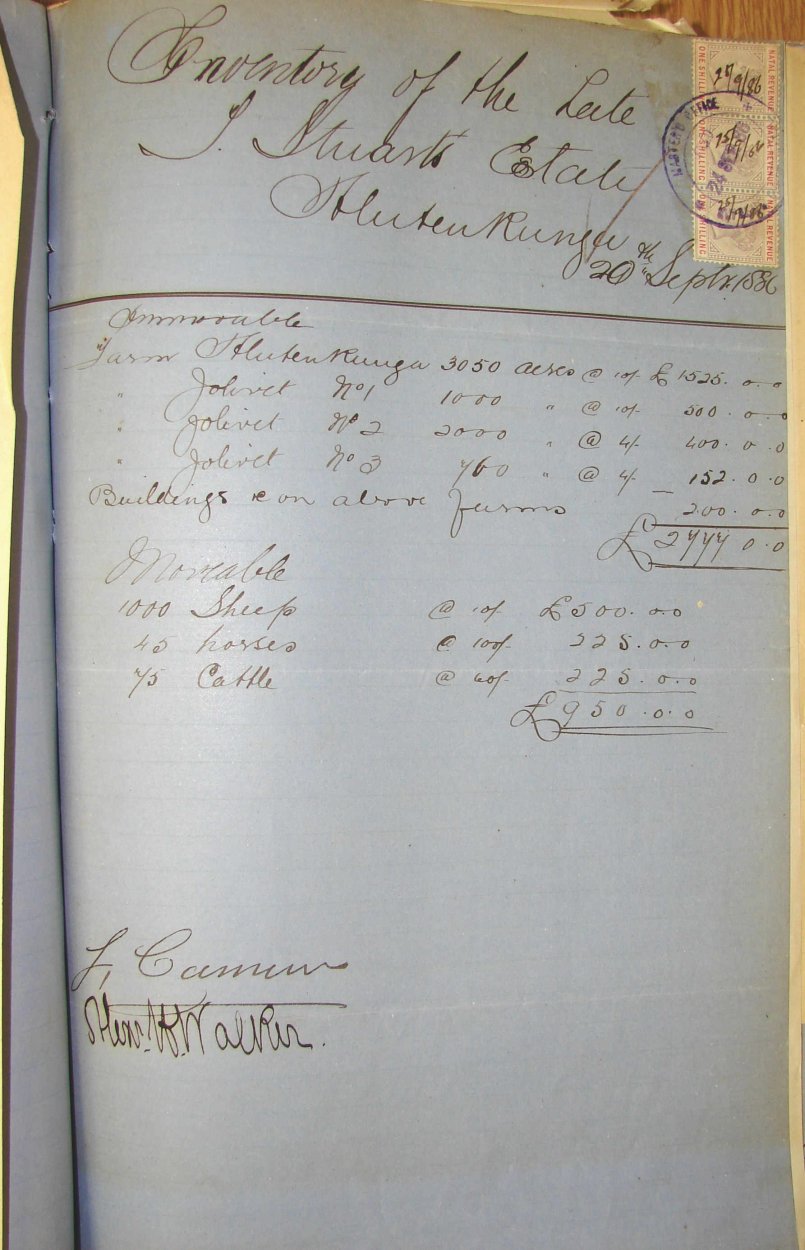 Inventory of the Late
J. Stuarts Estate
Hlutenkunga
20th Septr. 1886
NATAL REVENUE
ONE SHILLING
27/9/86
NATAL REVENUE
ONE SHILLING
NATAL REVENUE
ONE SHILLING
MASTER'S OFFICE
Immovable
Farm Hlutenkunga 3050 acres @ 10/- £ 1525. 0. 0
" Jolivet No 1 1000 " @ 10/- 500. 0. 0
" Jolivet No 2 2000 " @ 4/- 400. 0. 0
" Jolivet No 3 760 " @ 4/- 152. 0. 0
Buildings &c on above farms 200. 0. 0
£ 2777 0. 0
Moveable
1000 Sheep @ 10/- £500. 0. 0
45 horses @ 100/- 225. 0. 0
75 Cattle @ 60/- 225. 0. 0
£950. 0. 0
Walker.